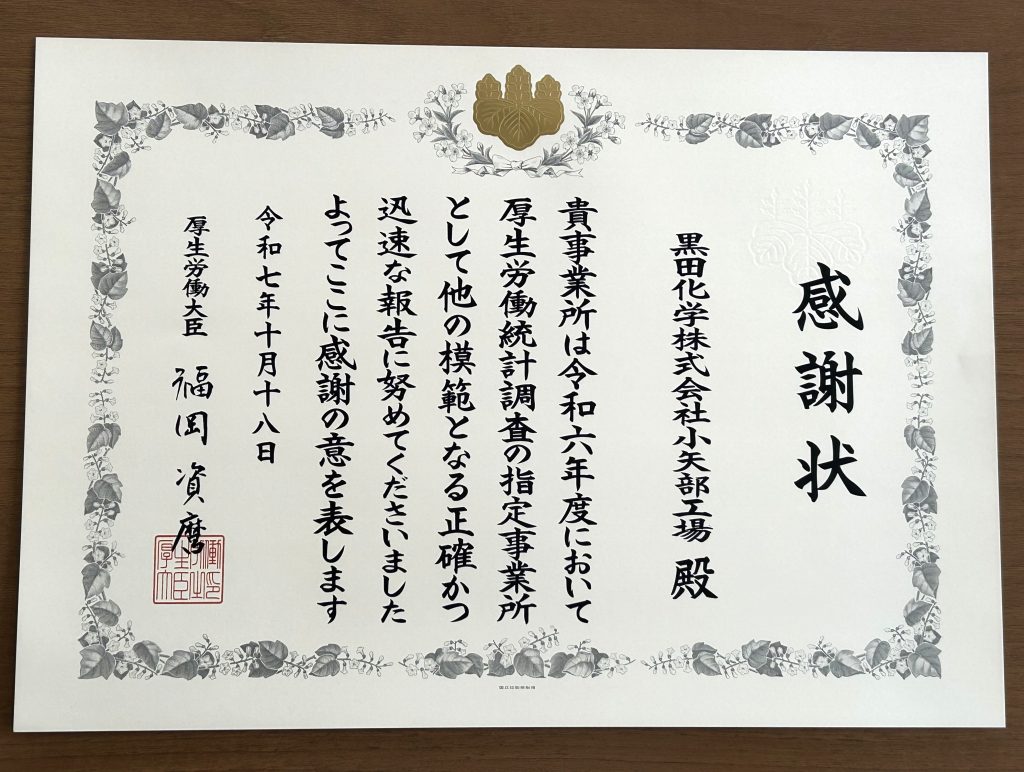 感謝状
黒田化学株式会社小矢部工場 殿
貴事業所は令和六年度において
厚生労働統計調査の指定事業所
として他の模範となる正確かつ
迅速な報告に努めてくださいました
よってここに感謝の意を表します
令和七年十月十八日
厚生労働大臣 福岡資麿